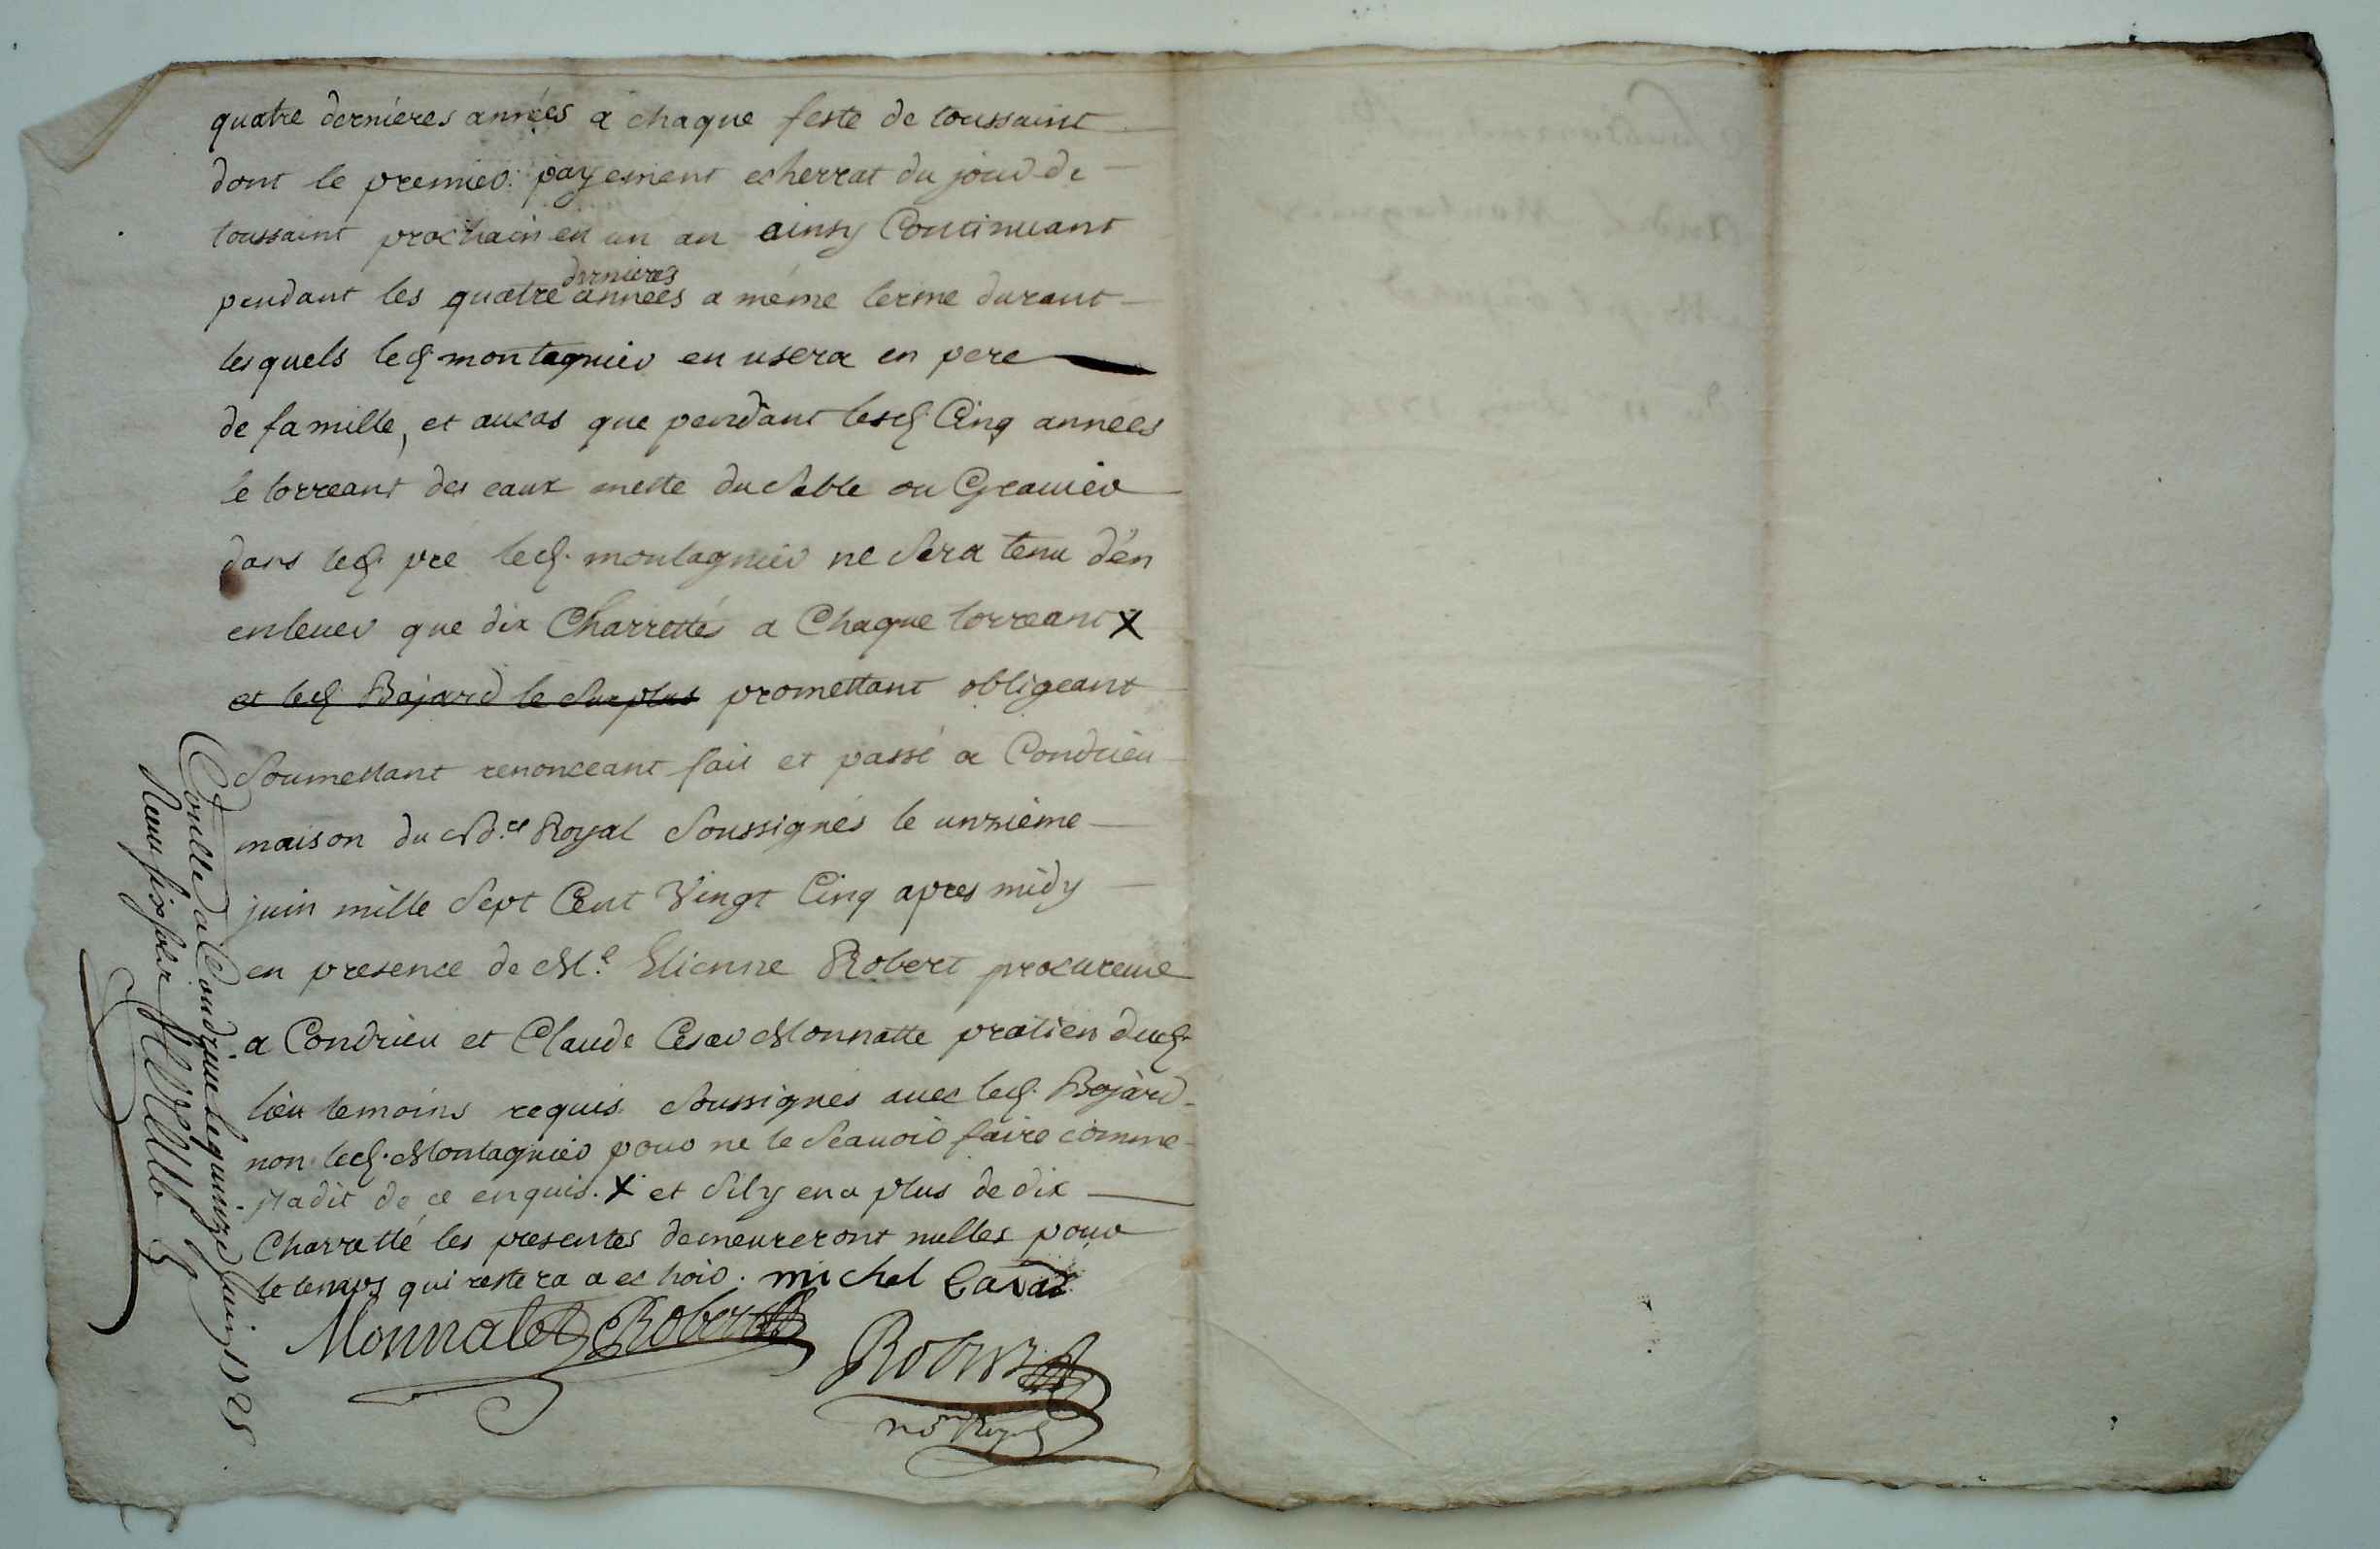 quatre derniéres années a chaque feste de toussaint
dont le premier payement echerrat du jour de
toussaint prochain en un an ainsy Continuant
dernieres
pendant les quatre années a même terme durant
lesquels led. montagnier en usera en pere
de famille, et aucas que pendant lesd. Cinq années
le torreant des eaux mette du Sable ou Gravier
dans led. pré led. montagnier ne Sera tenu d'en
enlever que dix Charrettés a Chaque torreant X
et led. Bajard le Surplus promettant obligeant
Soumettant renonceant fait et passé a Condrieu
maison du Nore Royal Soussignés le unzième
juin mille Sept Cent Vingt Cinq apres midy
en presence de Me. Etienne Robert procureur
a Condrieu et Claude Cesar Monnatte pratien dud.
lieu temoins requis Soussignés avec led. Bajard
non led. Montagnier pour ne le Scauoir faire comme
il a dit de ce enquis. X et Sil y en a plus de dix
Charretté les presentes demeureront nulles pour
le temps qui restera a echoir. michel
Monnatet Robert
Nore Royal
Controllé a Condrieu le quinze Juin 1725
Receu six sols